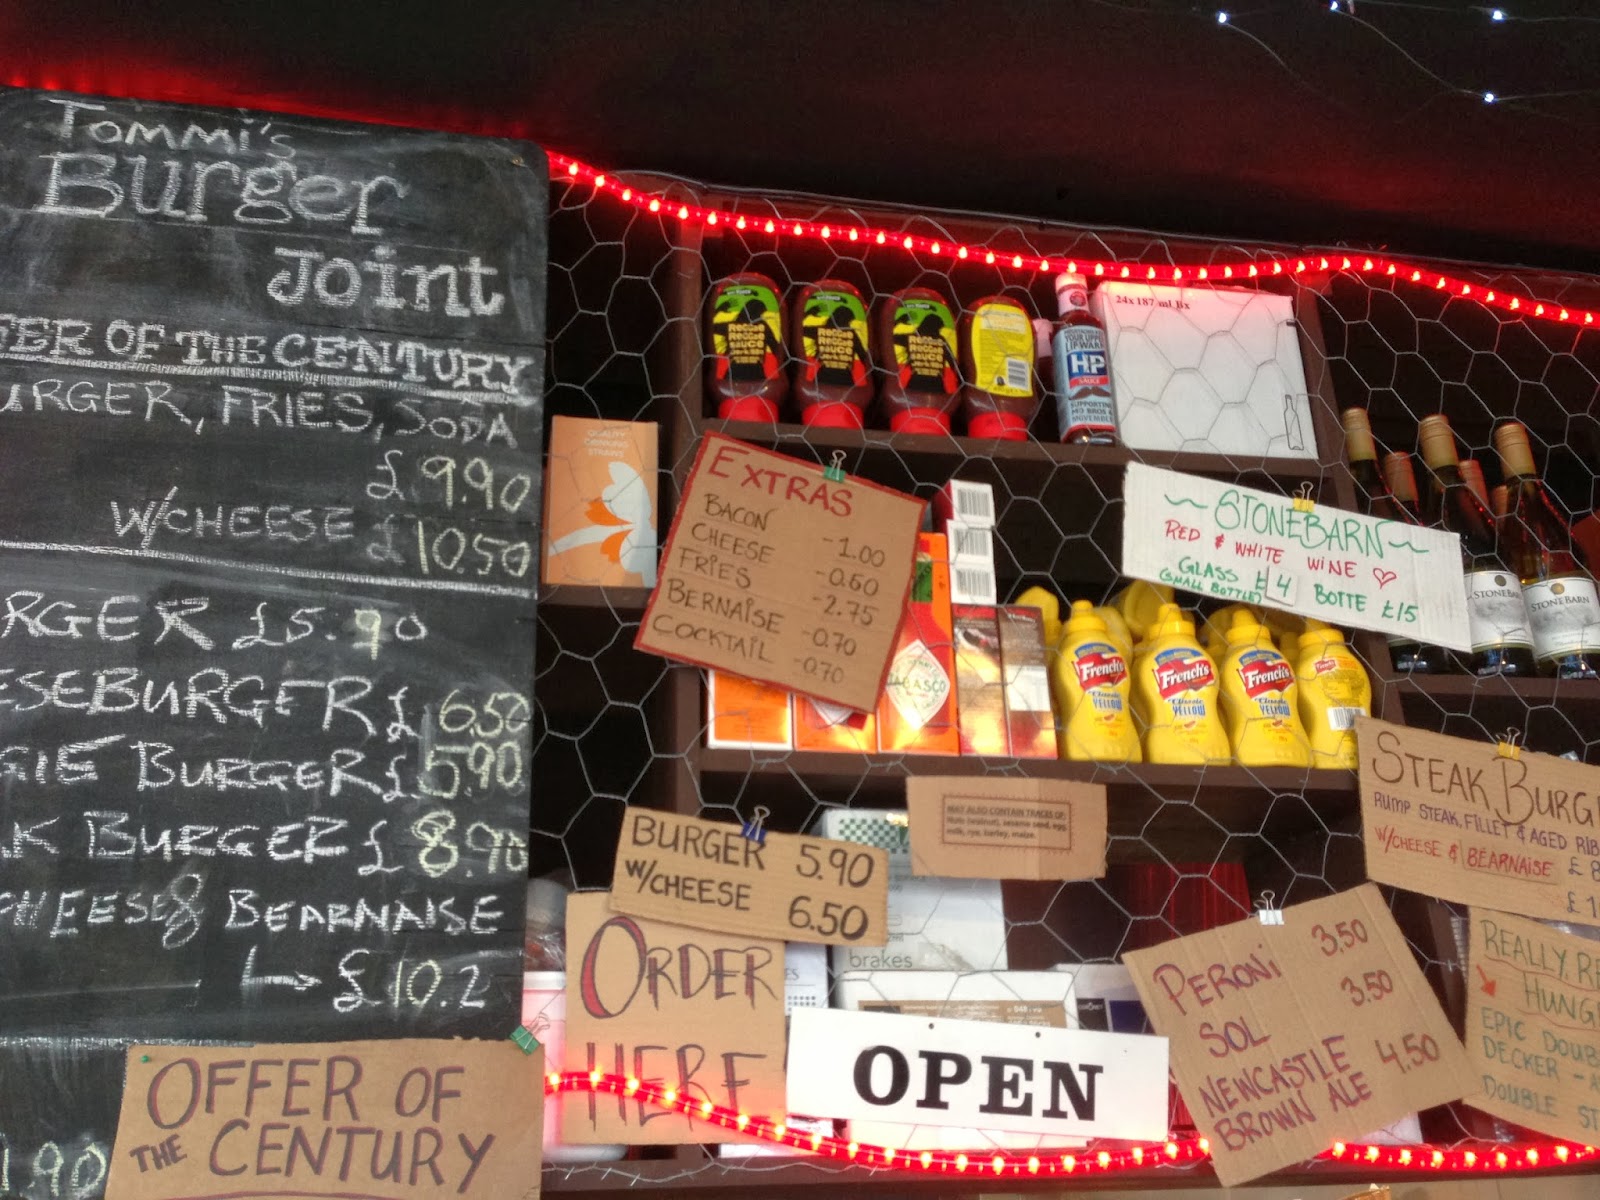 Tommi's
Burger
Joint
FER OF THE CENTURY
URGER, FRIES, SODA
£9.90
W/CHEESE £10.50
RGER £5.90
ESEBURGER £6.50
GIE BURGER £5.90
AK BURGER £8.90
CHEESE & BEARNAISE
£10.2
1.90
OFFER OF
THE CENTURY
QUALITY
DRINKING
STRAWS
Reggae
Reggae
sauce
Reggae
Reggae
sauce
Reggae
Reggae
sauce
HP
SAUCE
SUPPORTING
MO BROS &
MOVEMBER
24x187 ml Bx
EXTRAS
BACON -1.00
CHEESE -0.60
FRIES -2.75
BERNAISE -0.70
COCKTAIL -0.70
TABASCO
~STONEBARN~
RED & WHITE WINE ♡
GLASS £4 BOTTE £15
(SMALL BOTTLE)
STONEBARN
STONEBARN
French's
Classic
YELLOW
French's
Classic
YELLOW
French's
Classic
YELLOW
MAY ALSO CONTAIN TRACES OF:
Nuts (walnut), sesame seed, egg,
milk, rye, barley, maize.
BURGER 5.90
W/CHEESE 6.50
ORDER
HERE
brakes
OPEN
PERONI 3.50
SOL 3.50
NEWCASTLE
BROWN ALE 4.50
STEAK BURG
RUMP STEAK, FILLET & AGED RIB
W/CHEESE & BÉARNAISE £8
£1
REALLY, RE
HUNG
EPIC DOUB
DECKER -
DOUBLE ST